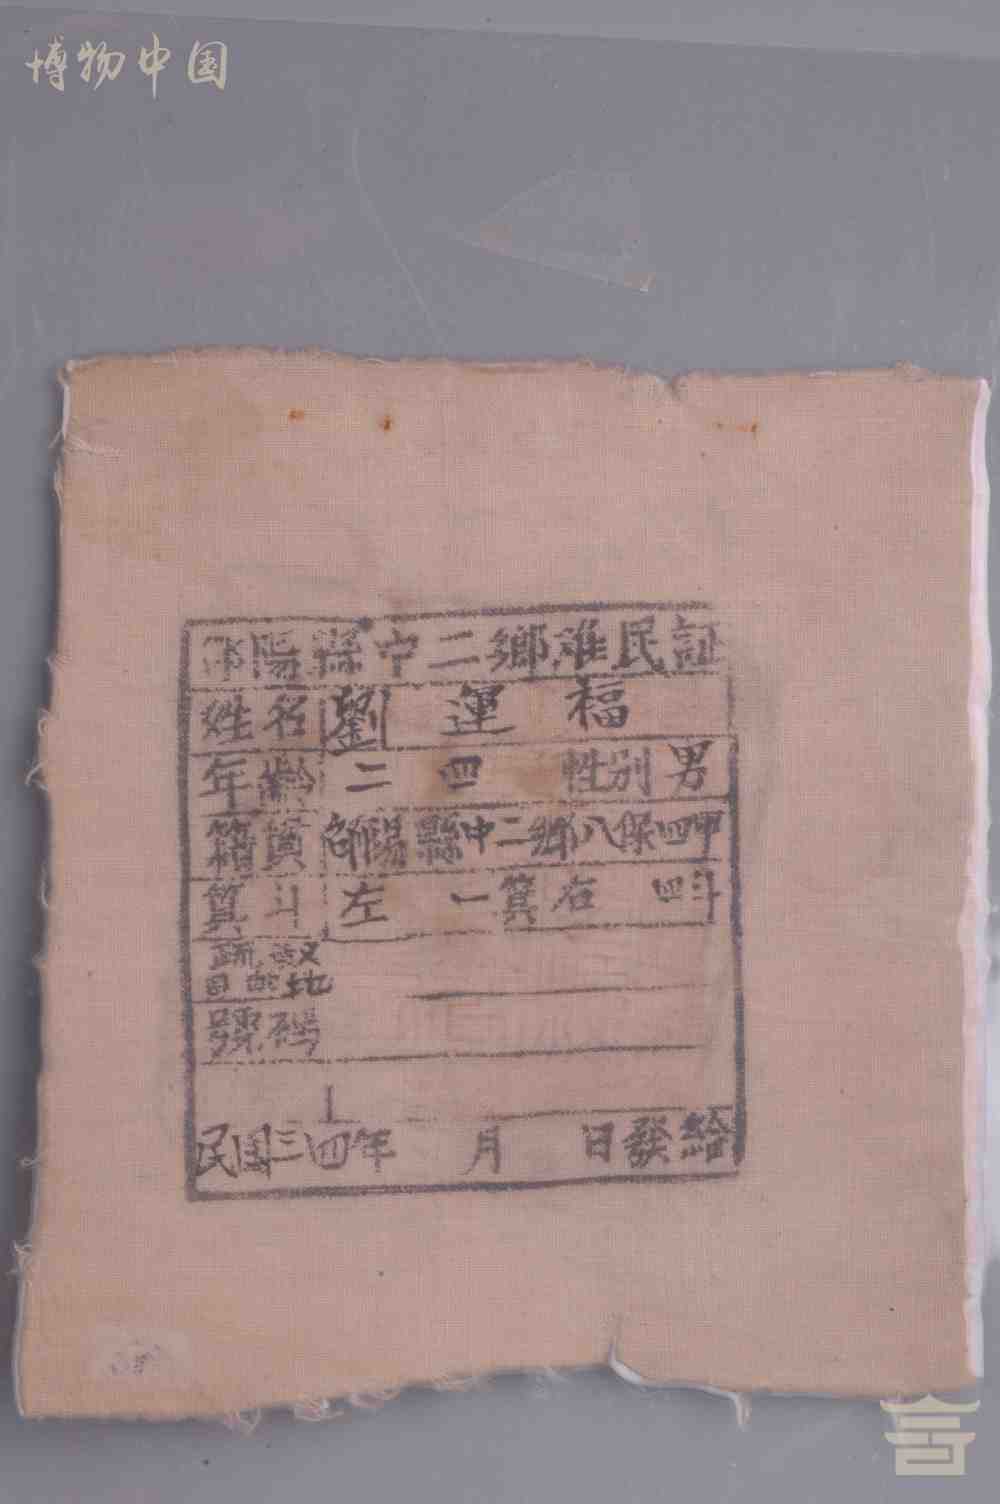 博物中国
邵陽縣中二鄉难民証
姓名 劉運福
年齡 二四 性别 男
籍貫 邵陽縣中二鄉八保四甲
箕斗 左一箕右四斗
疏散
目的地
號碼
民国三四年 月 日發給